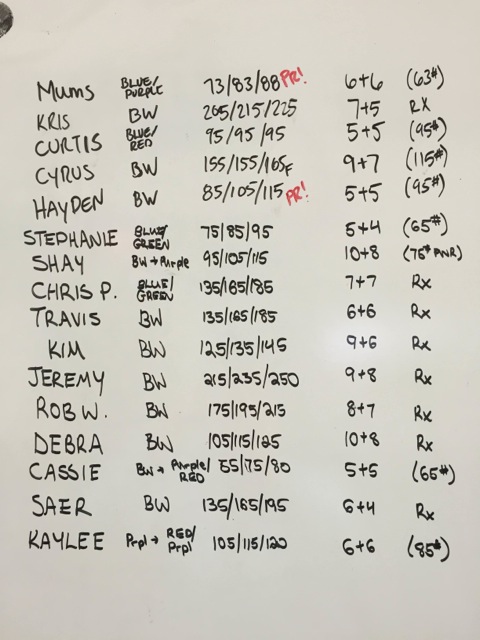 Mums BLUE/PURPLE 73/83/88 PR! 6+6 (63#)
KRIS BW 205/215/225 7+5 RX
CURTIS BLUE/RED 95/95/95 5+5 (95#)
CYRUS BW 155/155/165F 9+7 (115#)
HAYDEN BW 85/105/115 PR! 5+5 (95#)
STEPHANIE BLUE/GREEN 75/85/95 5+4 (65#)
SHAY BW→Purple 95/105/115 10+8 (75# PWR)
CHRIS P. BLUE/GREEN 135/165/185 7+7 Rx
TRAVIS BW 135/165/185 6+6 Rx
KIM BW 125/135/145 9+6 Rx
JEREMY BW 215/235/250 9+8 Rx
ROB W. BW 175/195/215 8+7 Rx
DEBRA BW 105/115/125 10+8 Rx
CASSIE BW→Purple/RED 55/75/80 5+5 (65#)
SAER BW 135/165/195 6+4 Rx
KAYLEE Prpl→RED/Prpl 105/115/120 6+6 (85#)